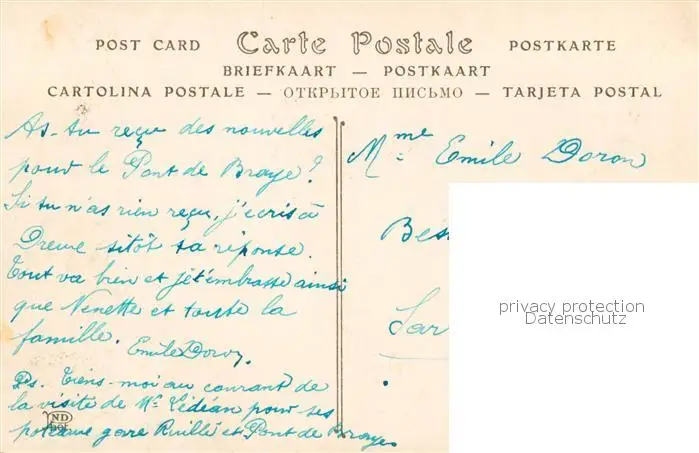 POST CARD Carte Postale POSTKARTE
BRIEFKAART — POSTKAART
CARTOLINA POSTALE — ОТКРЫТОЕ ПИСЬМО — TARJETA POSTAL
As-tu reçu des nouvelles
pour le Pont de Braye?
Si tu n'as rien reçu, j'écris à
Dreux sitôt ta réponse.
Tout va bien et je t'embrasse ainsi
que Nenette et toute la
famille. Emile Doron
Ps. Tiens-moi au courant de
la visite de Mr Lédéan pour ses
poteaux gare Ruillé et Pont de Braye
ND
Mme Emile Doron
Bes
Sar
privacy protection
Datenschutz